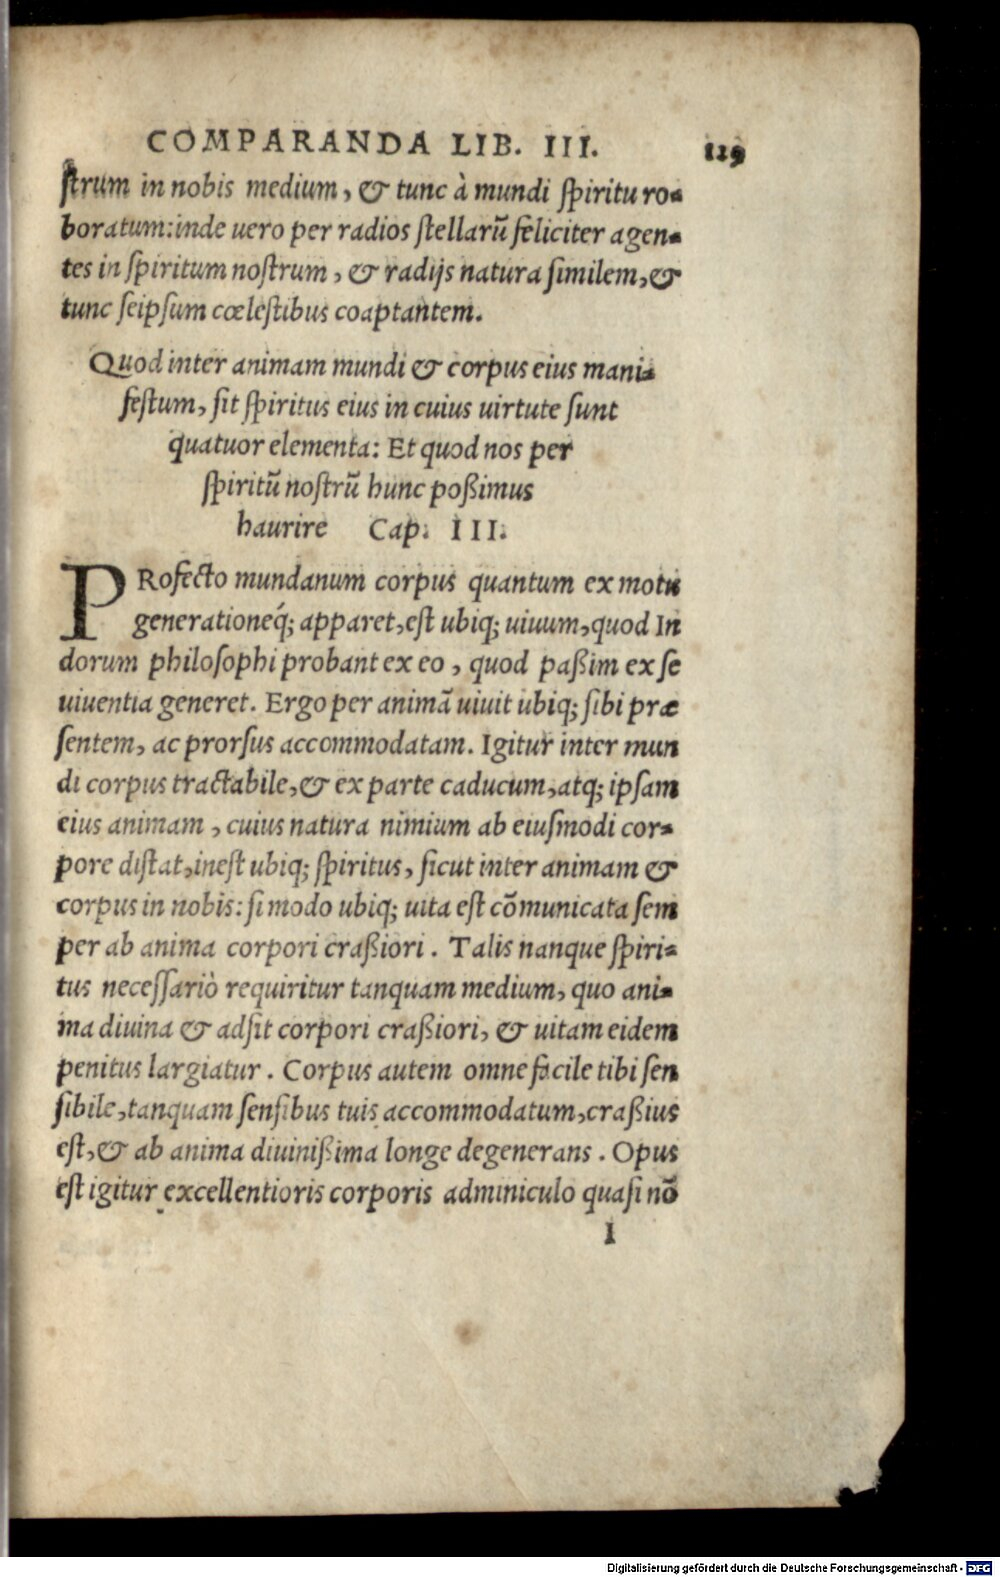 COMPARANDA LIB. III. 129
ſtrum in nobis medium, & tunc à mundi ſpiritu ro-
boratum: inde uero per radios ſtellarū feliciter agen-
tes in ſpiritum noſtrum, & radijs natura ſimilem, &
tunc ſeipſum cœleſtibus coaptantem.
Quod inter animam mundi & corpus eius mani-
feſtum, ſit ſpiritus eius in cuius uirtute ſunt
quatuor elementa: Et quod nos per
ſpiritū noſtrū hunc poßimus
haurire Cap. III.
PRofecto mundanum corpus quantum ex motu
generationeq́; apparet, eſt ubiq; uiuum, quod In
dorum philoſophi probant ex eo, quod paßim ex ſe
uiuentia generet. Ergo per animā uiuit ubiq; ſibi præ
ſentem, ac prorſus accommodatam. Igitur inter mun
di corpus tractabile, & ex parte caducum, atq; ipſam
eius animam, cuius natura nimium ab eiuſmodi cor-
pore diſtat, ineſt ubiq; ſpiritus, ſicut inter animam &
corpus in nobis: ſi modo ubiq; uita eſt cōmunicata ſem
per ab anima corpori craßiori. Talis nanque ſpiri-
tus neceſſariò requiritur tanquam medium, quo ani-
ma diuina & adſit corpori craßiori, & uitam eidem
penitus largiatur. Corpus autem omne facile tibi ſen
ſibile, tanquam ſenſibus tuis accommodatum, craßius
eſt, & ab anima diuinißima longe degenerans. Opus
eſt igitur excellentioris corporis adminiculo quaſi nō
I
Digitalisierung gefördert durch die Deutsche Forschungsgemeinschaft - DFG